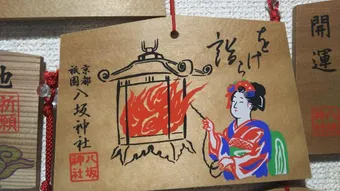 をけら
詣り
京都
祇園
八坂神社
八坂
神社
開運
祈願